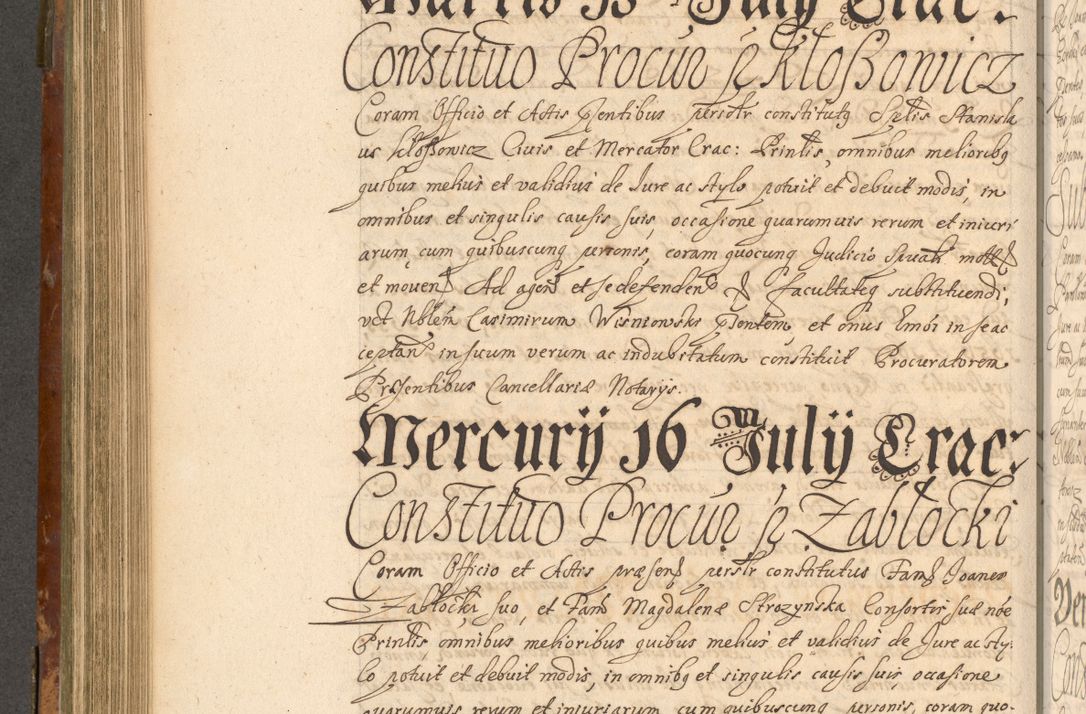 Martis 15 July Crac:
Constituo Procur p Kłoßowicz
Coram Officio et Actis pntibus personlr constitutq Spblis Stanisla
us Kłoßowicz Civis et Mercator Crac: Prinlis, omnibus melioribq
quibus melius et validius de Jure ac stylo potuit et debuit modis, in
omnibus et singulis causis suis, occasione quarumvis rerum et iniuri
arum, cum quibuscunq personis, coram quocunq Judicio
et moven Ad agen et se defenden facultateq substituendi,
Nblem Casimirum Wisniowski pntem et onus in se ac
ceptan in suum verum ac indubitatum constituit Procuratorem
Præsentibus Cancellariæ Notarys.
Mercurÿ 16 Julÿ Crac:
Constituo Procur p Zabłocki
Coram Officio et Actis præsen persnlr constitutus Fam Joannes
Zabłocki suo, et Fam Magdalenæ Strozynska Consortis suæ nõe
Prinlis omnibus melioribus quibus melius et validius de Jure ac sty
lo potuit et debuit modis, in omnibq et singulis causis suis, occasione
quarumvis rerum et iniuriarum, cum quibuscunq personis, coram quo-